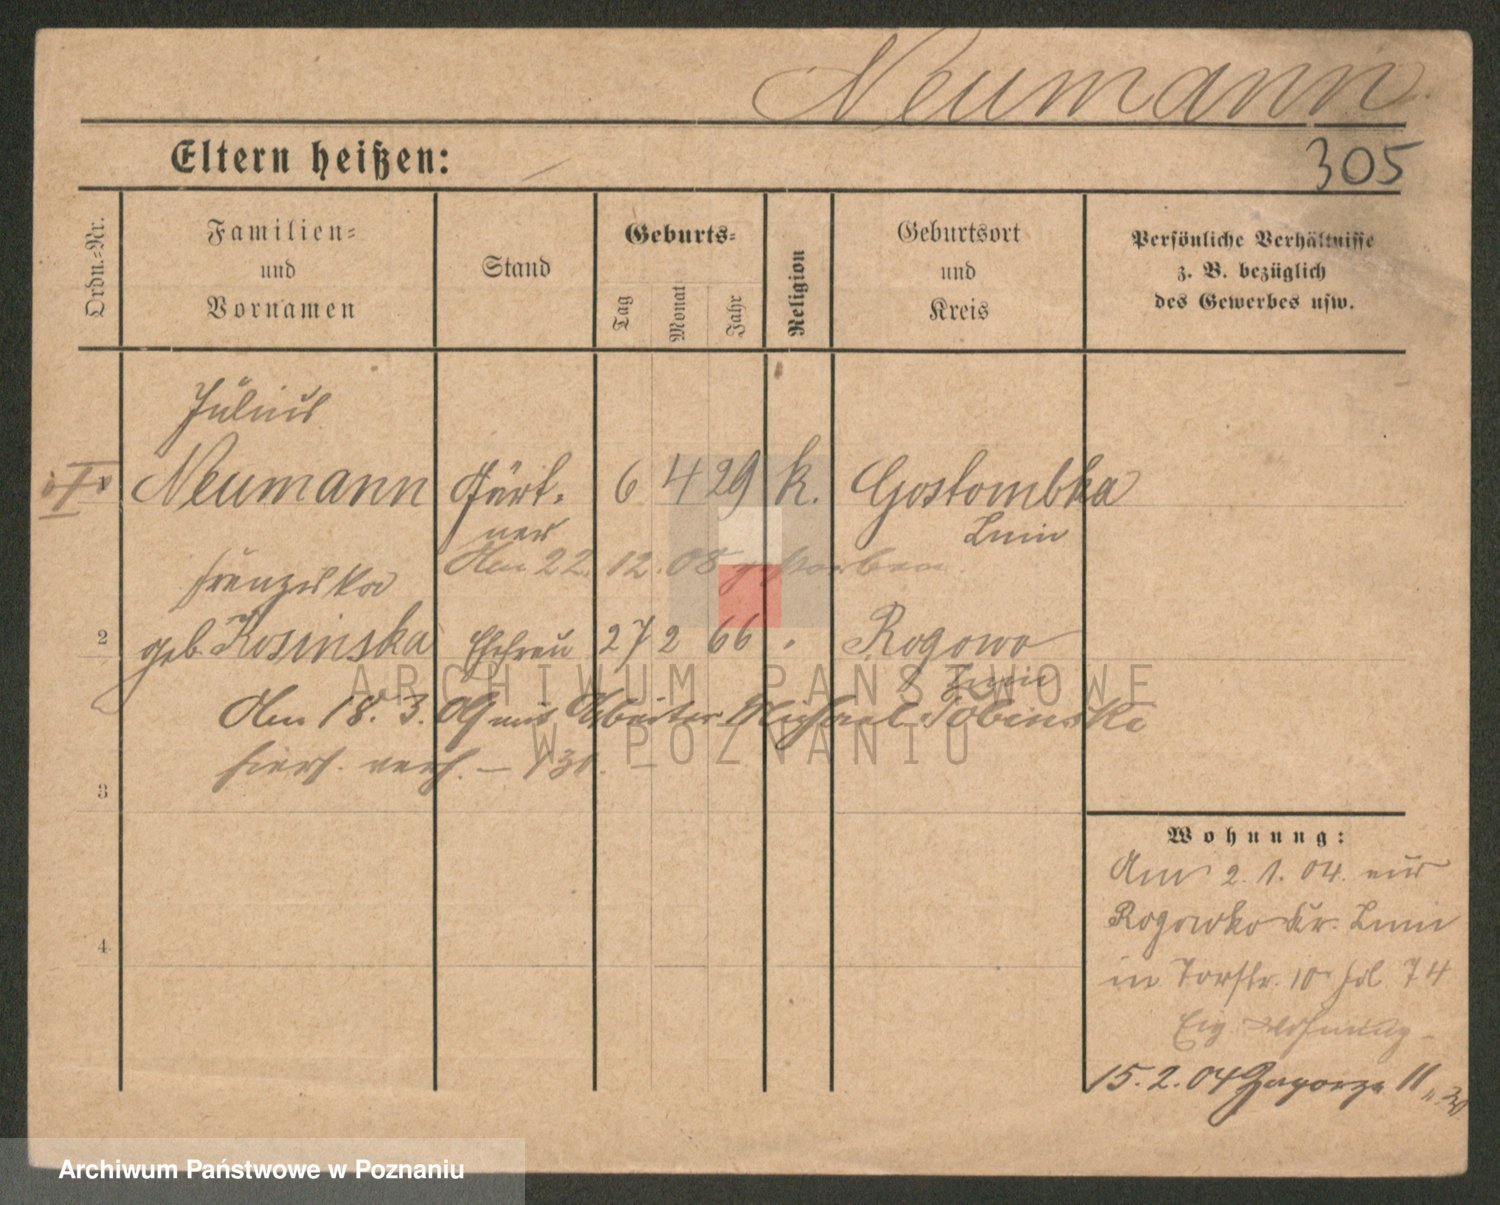 Neumann.
Eltern heißen:
305
Ordn.-Nr.
Familien-
und
Vornamen
Stand
Geburts-
Tag
Monat
Jahr
Religion
Geburtsort
und
Kreis
Persönliche Verhältnisse
z. B. bezüglich
des Gewerbes usw.
Julius
Neumann Gärt- 6 4 29 k. Gostombka
ner Znin
Am 22. 12. 08 gestorben
Franziska
2 geb. Kosinska Ehefrau 27 2 66 Rogowo
Znin
Am 18. 3. 09 mit Arbeiter Michael
verh.
3
4
Wohnung:
Am 2. 1. 04. aus
Rogowko Kr. Znin
in Torstr. 10 74
Eig. Wohnung
15. 2. 04 Zagorze 11
ARCHIWUM PAŃSTWOWE
W POZNANIU
Archiwum Państwowe w Poznaniu